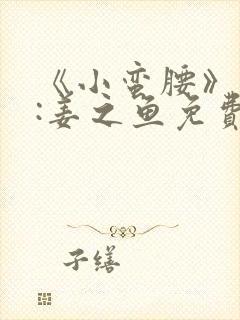 《小蛮腰》
:姜之鱼免费
子缮